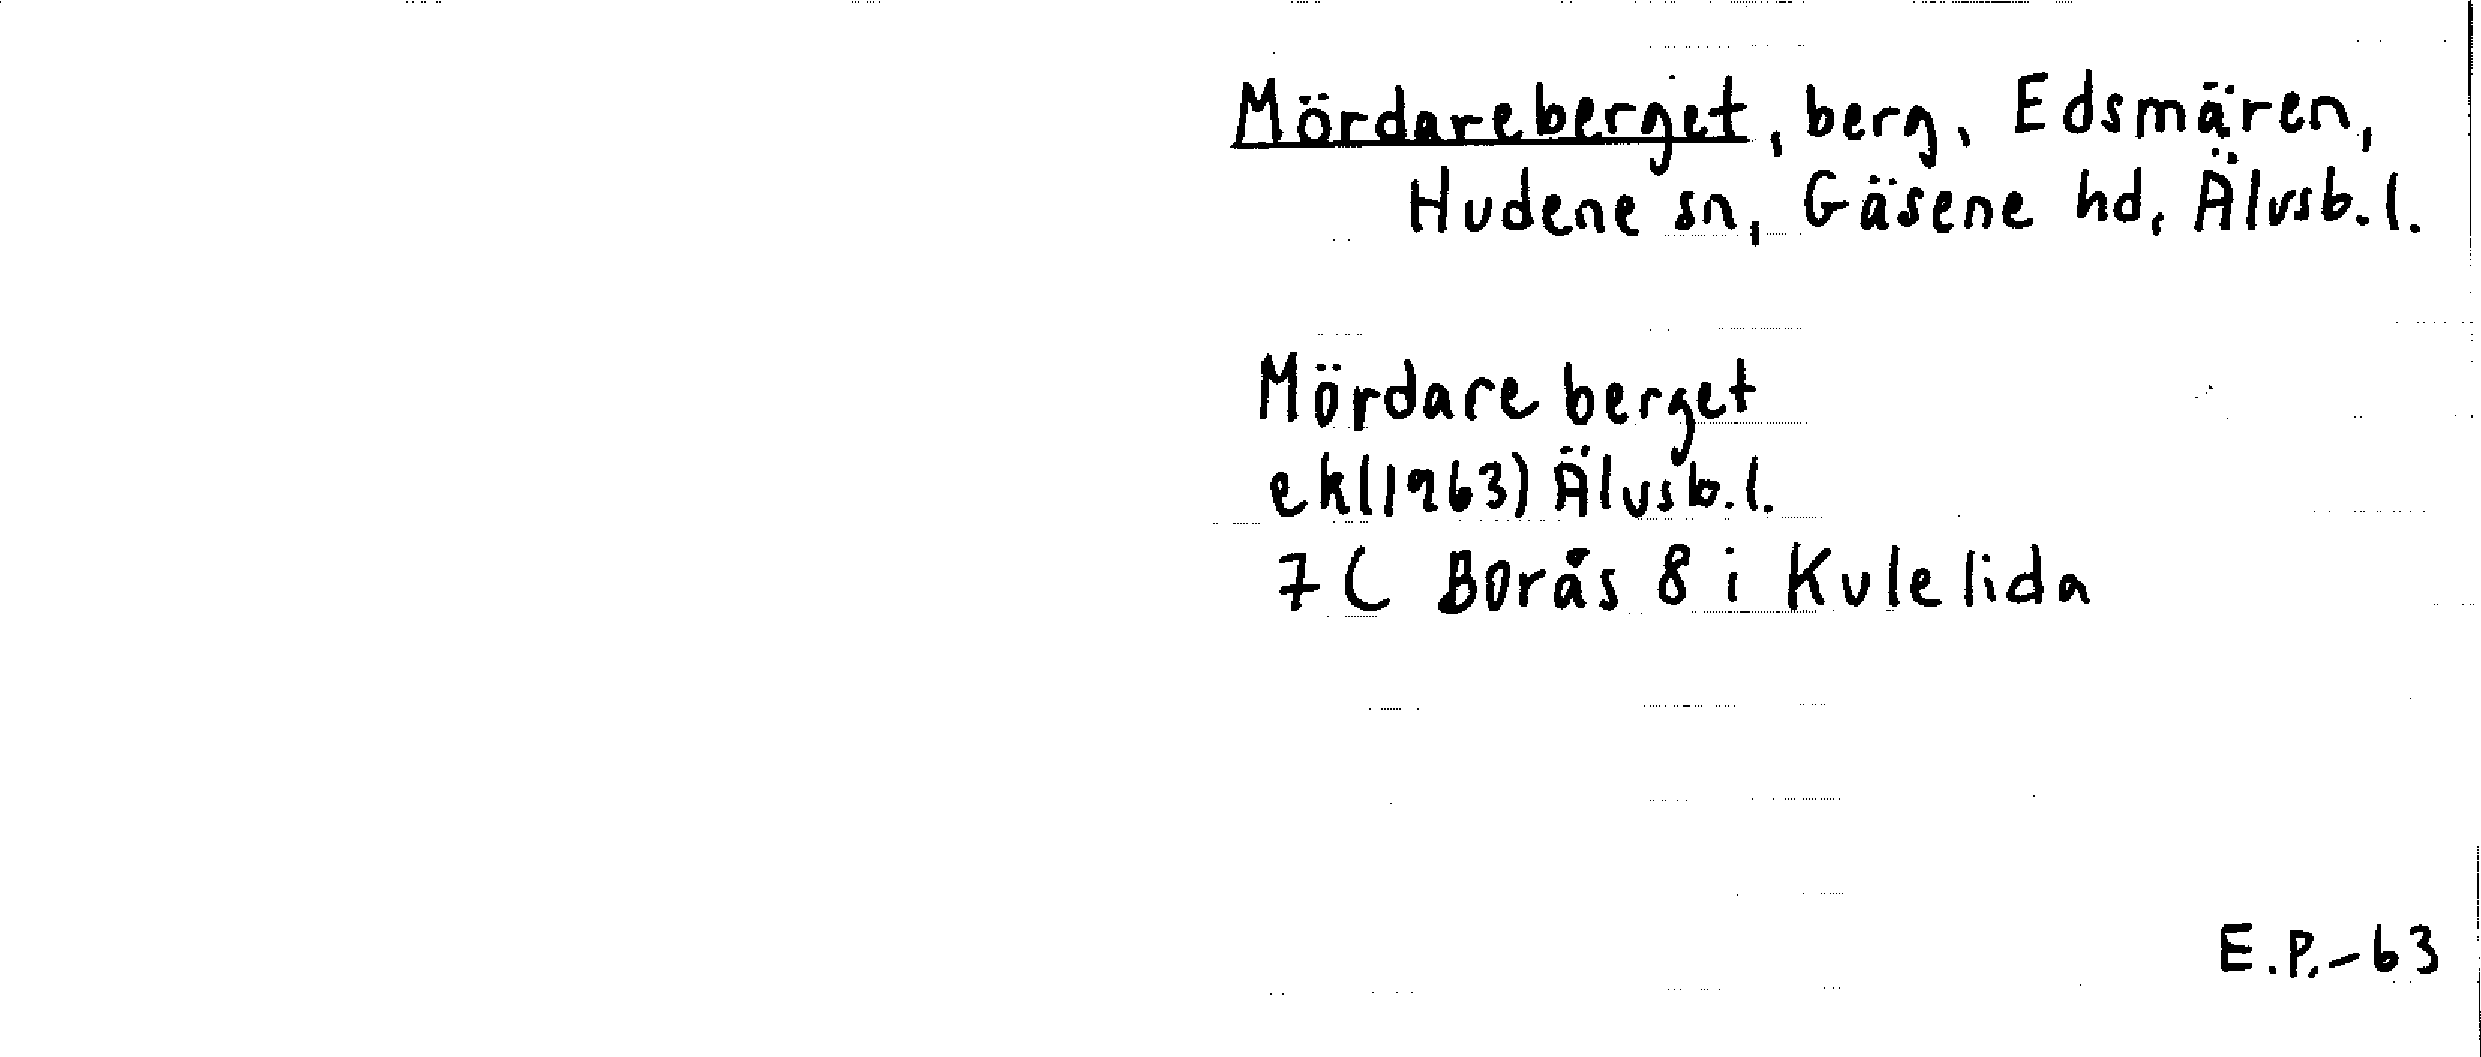 Mördareberget, berg, Edsmären,
Hudene sn, Gäsene hd, Älvsb. l.
Mördare berget
ek(1963) Älvsb. l.
7C Borås 8 i Kulelida
E.P.-63